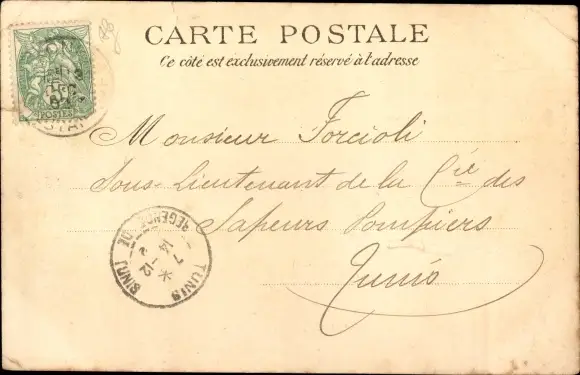 CARTE POSTALE
Ce côté est exclusivement réservé à l'adresse
POSTES
Monsieur Forcioli
Sous-Lieutenant de la Cie des
Sapeurs Pompiers
Tunis
TUNIS
REGENCE DE TUNIS
14-12